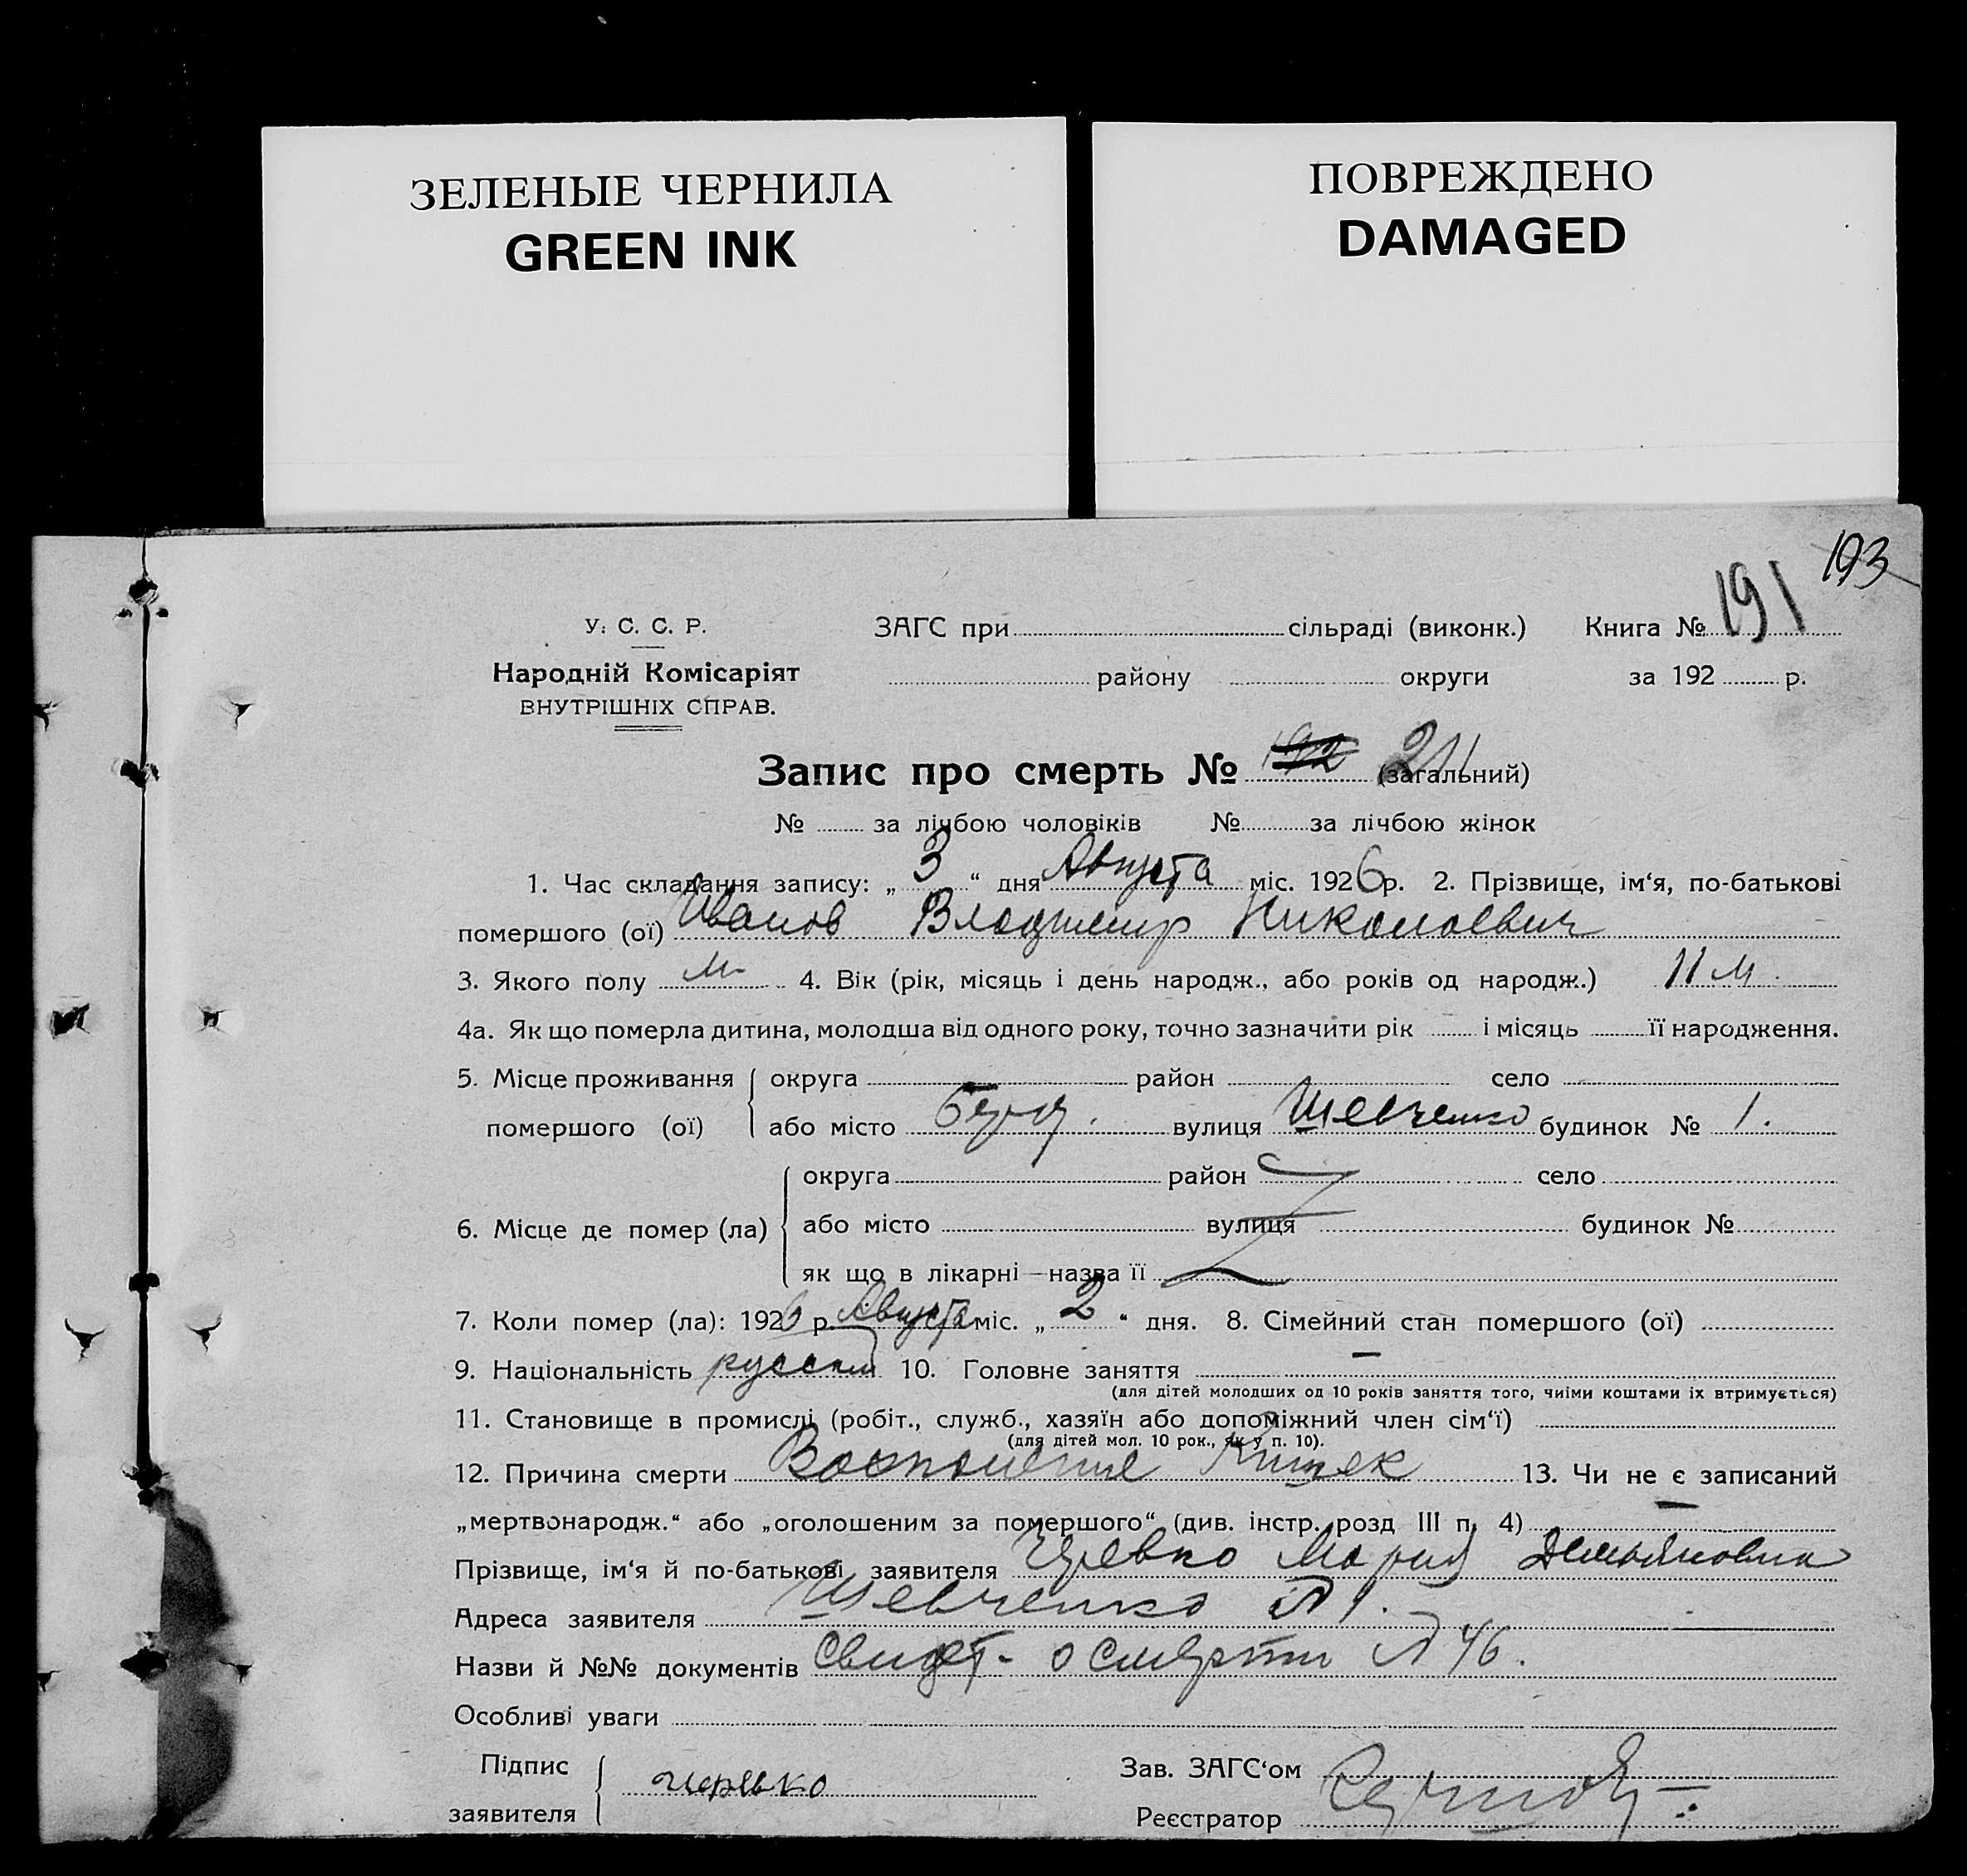 ЗЕЛЕНЫЕ ЧЕРНИЛА
GREEN INK
ПОВРЕЖДЕНО
DAMAGED
193
У. С. С. Р. ЗАГС при сільраді (виконк.) Книга № 191
Народній Комісаріят району округи за 192 р.
ВНУТРІШНІХ СПРАВ.
Запис про смерть № 192 211 (загальний)
№ за лічбою чоловіків № за лічбою жінок
1. Час складання запису: „ 3 “ дня Августа міс. 1926 р. 2. Прізвище, ім‘я, по-батькові
помершого (ої) Иванов Владимир Николаевич
3. Якого полу м. 4. Вік (рік, місяць і день народж., або років од народж.) 11 м.
4а. Як що померла дитина, молодша від одного року, точно зазначити рік і місяць її народження.
5. Місце проживання округа район село
помершого (ої) або місто вулиця Шевченко будинок № 1.
округа район село
6. Місце де помер (ла) або місто вулиця будинок №
як що в лікарні—назва її
7. Коли помер (ла): 1926 р. Августа міс. „ 2 “ дня. 8. Сімейний стан помершого (ої)
9. Національність русский 10. Головне заняття —
(для дітей молодших од 10 років заняття того, чиїми коштами їх втримується)
11. Становище в промислі (робіт., служб., хазяїн або допоміжний член сім‘ї)
(для дітей мол. 10 рок., як у п. 10).
12. Причина смерти Воспаление Кишек 13. Чи не є записаний
„мертвонародж.“ або „оголошеним за помершого“ (див. інстр. розд III п. 4) —
Прізвище, ім‘я й по-батькові заявителя Черевко Мария Демьяновна
Адреса заявителя Шевченко № 1.
Назви й №№ документів Свидет- о смерти № 46.
Особливі уваги
Підпис Зав. ЗАГС‘ом
Черевко
заявителя Реєстратор